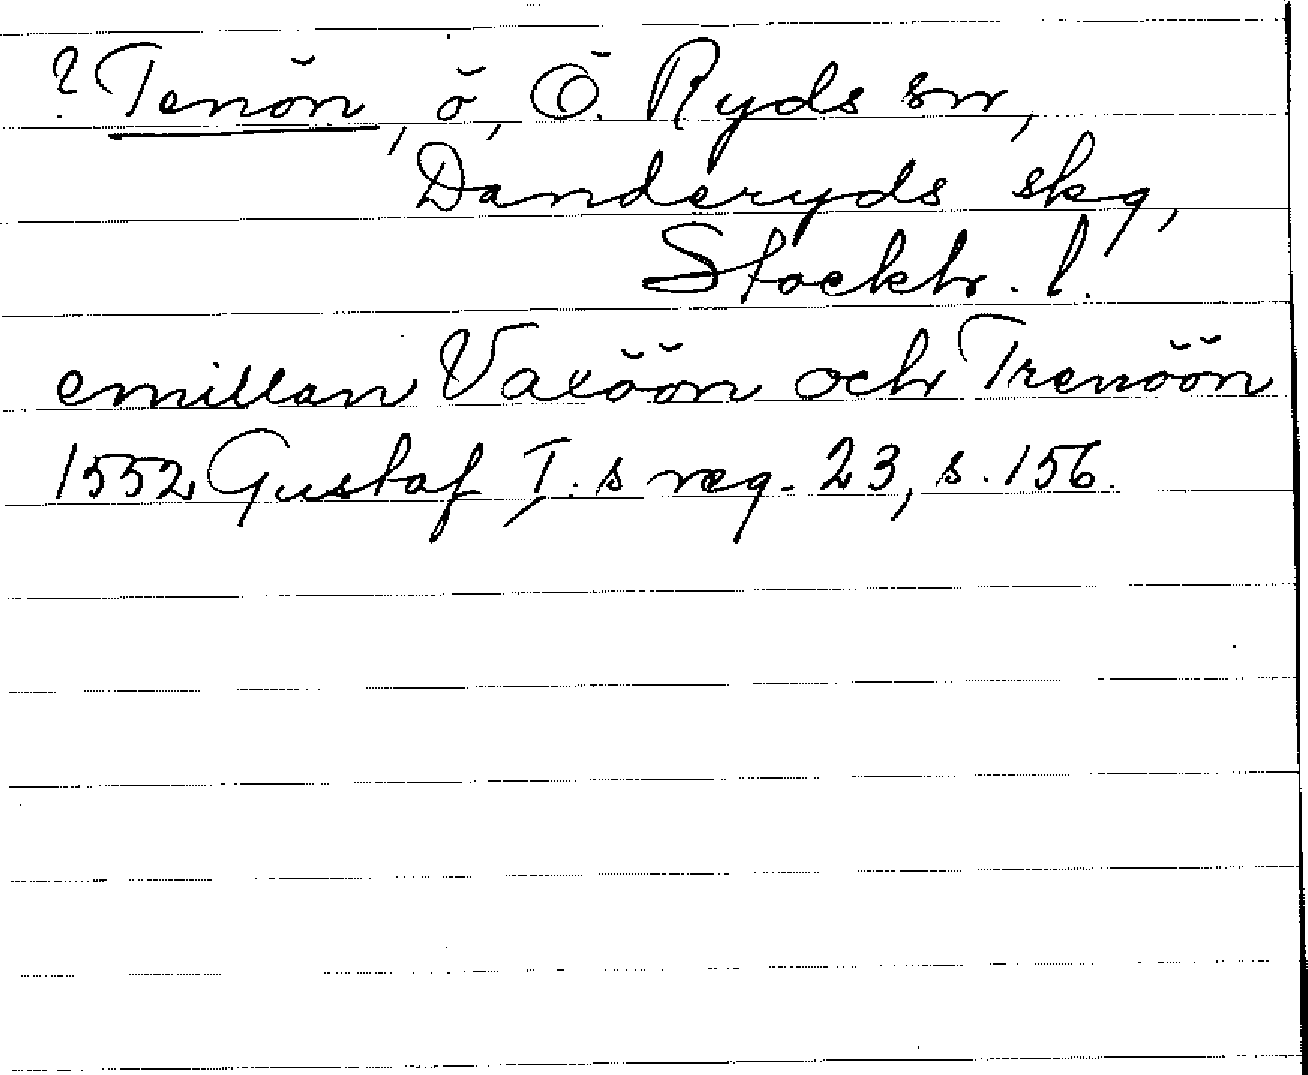 ? Tenön, ö, Ö. Ryds sn,
Danderyds skg,
Stockh. l.
emillan Vaxöön och Trenöön
1552 Gustaf I.s reg. 23, s. 156.